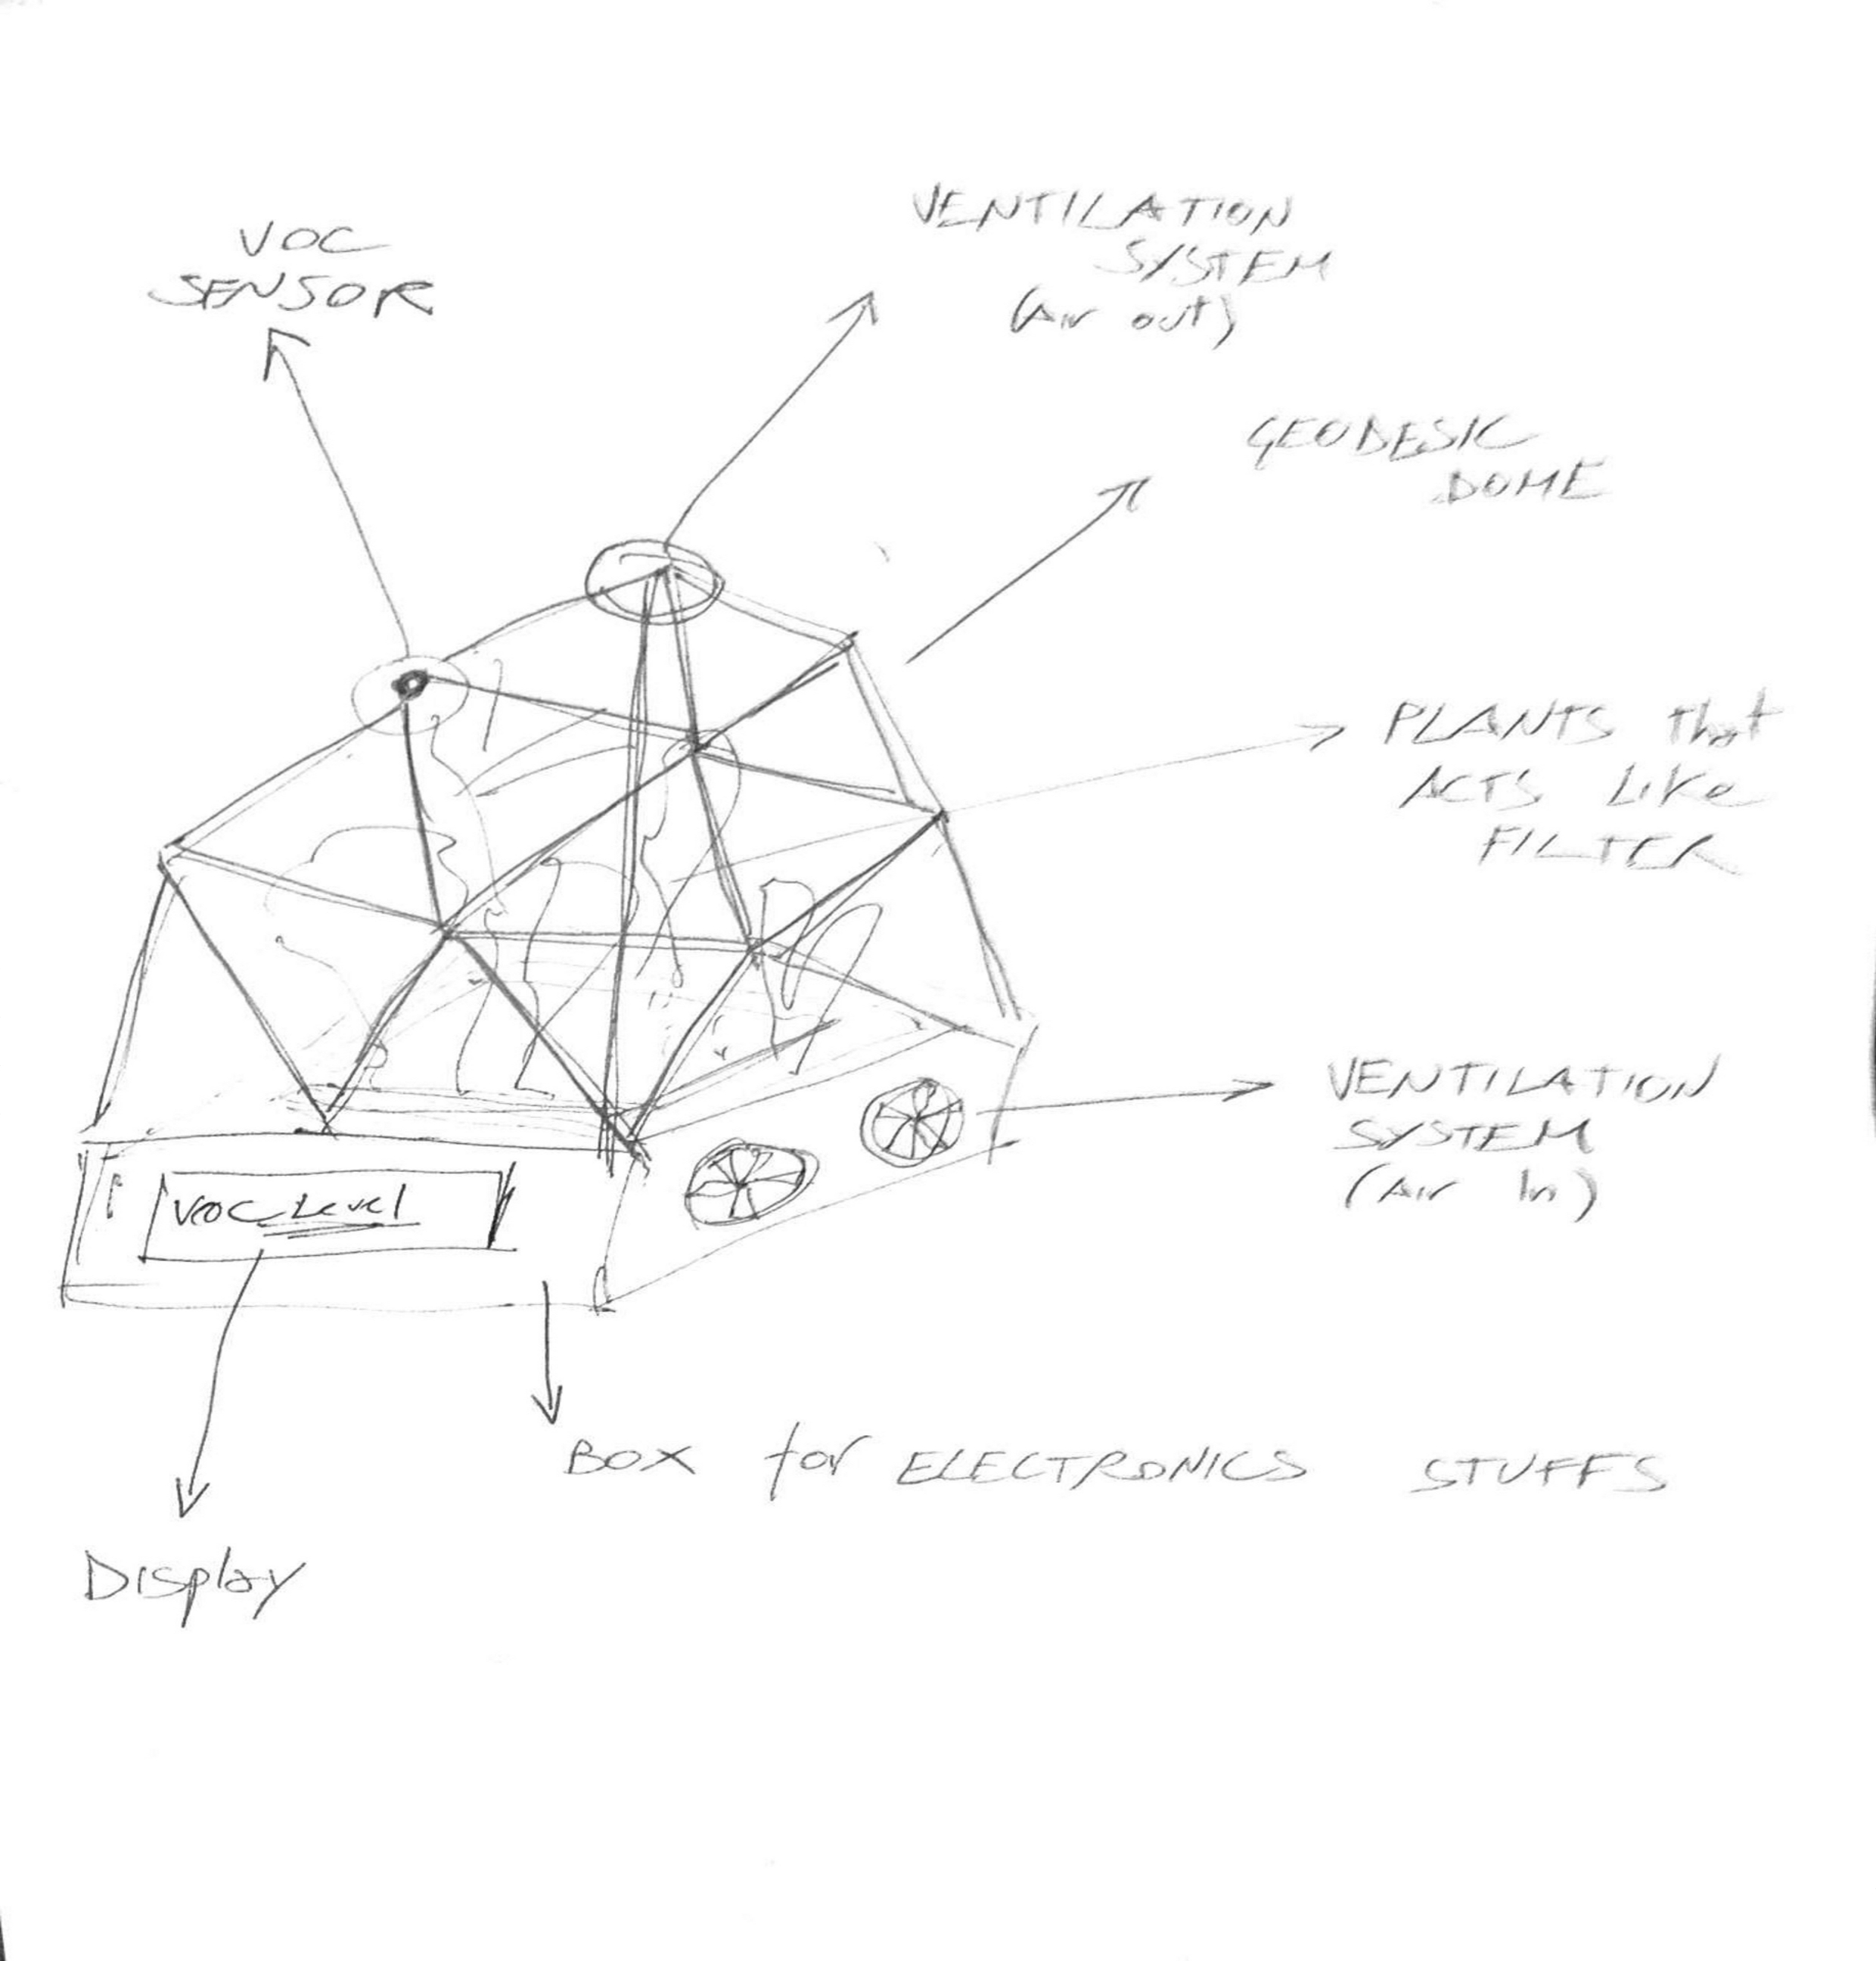 VOC
SENSOR
VENTILATION
SYSTEM
(Air out)
GEODESIC
DOME
PLANTS that
ACTS Like
FILTER
VENTILATION
SYSTEM
(Air In)
VOC Level
BOX for ELECTRONICS STUFFS
Display